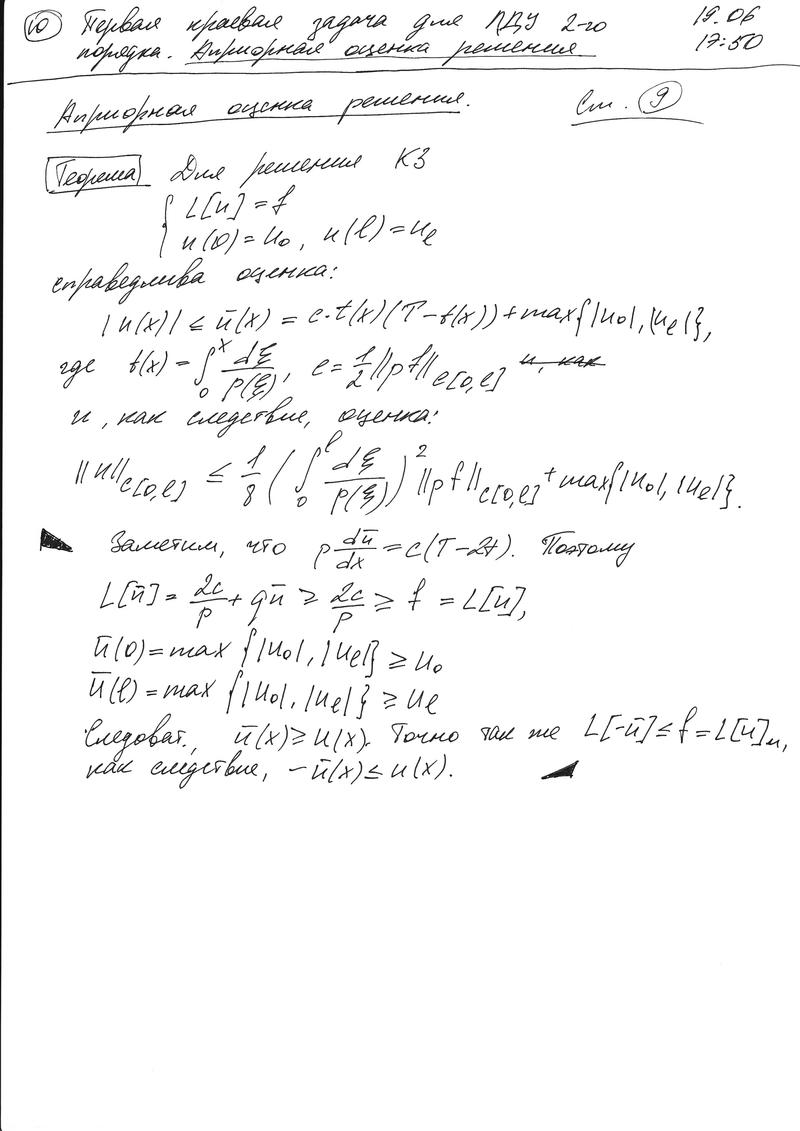 ⑩ Первая краевая задача для ЛДУ 2-го 19.06
порядка. Априорная оценка решения. 17:50
Априорная оценка решения. См. ⑨
Теорема Для решения КЗ
{ L[u] = f
u(0) = u₀, u(l) = u_l
справедлива оценка:
|u(x)| ≤ ū(x) = c·t(x)(T - t(x)) + max{|u₀|, |u_l|},
где t(x) = ∫₀ˣ dξ/p(ξ), c = 1/2 ||pf||_C[0,l] и, как
и, как следствие, оценка:
||u||_C[0,l] ≤ 1/8 (∫₀ˡ dξ/p(ξ))² ||pf||_C[0,l] + max{|u₀|, |u_l|}.
Заметим, что p dū/dx = c(T - 2t). Поэтому
L[ū] = 2c/p + qū ≥ 2c/p ≥ f = L[u],
ū(0) = max {|u₀|, |u_l|} ≥ u₀
ū(l) = max {|u₀|, |u_l|} ≥ u_l
Следоват., ū(x) ≥ u(x). Точно так же L[-ū] ≤ f = L[u] и,
как следствие, -ū(x) ≤ u(x).